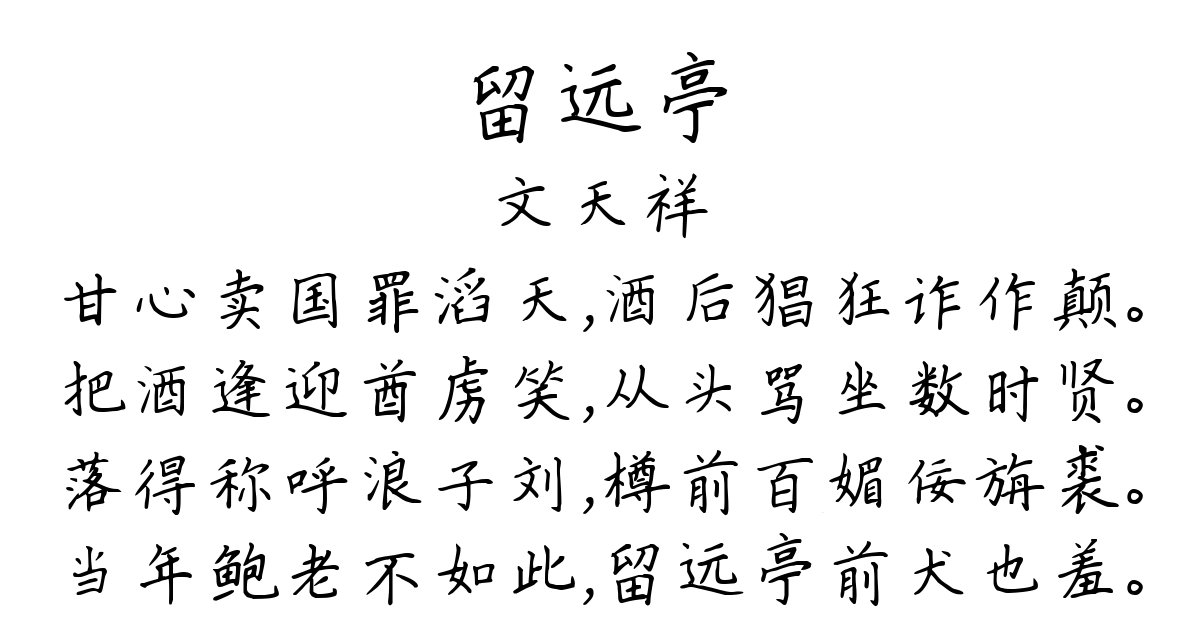 留远亭
文天祥
甘心卖国罪滔天,酒后猖狂诈作颠。
把酒逢迎酋虏笑,从头骂坐数时贤。
落得称呼浪子刘,樽前百媚佞旃裘。
当年鲍老不如此,留远亭前犬也羞。